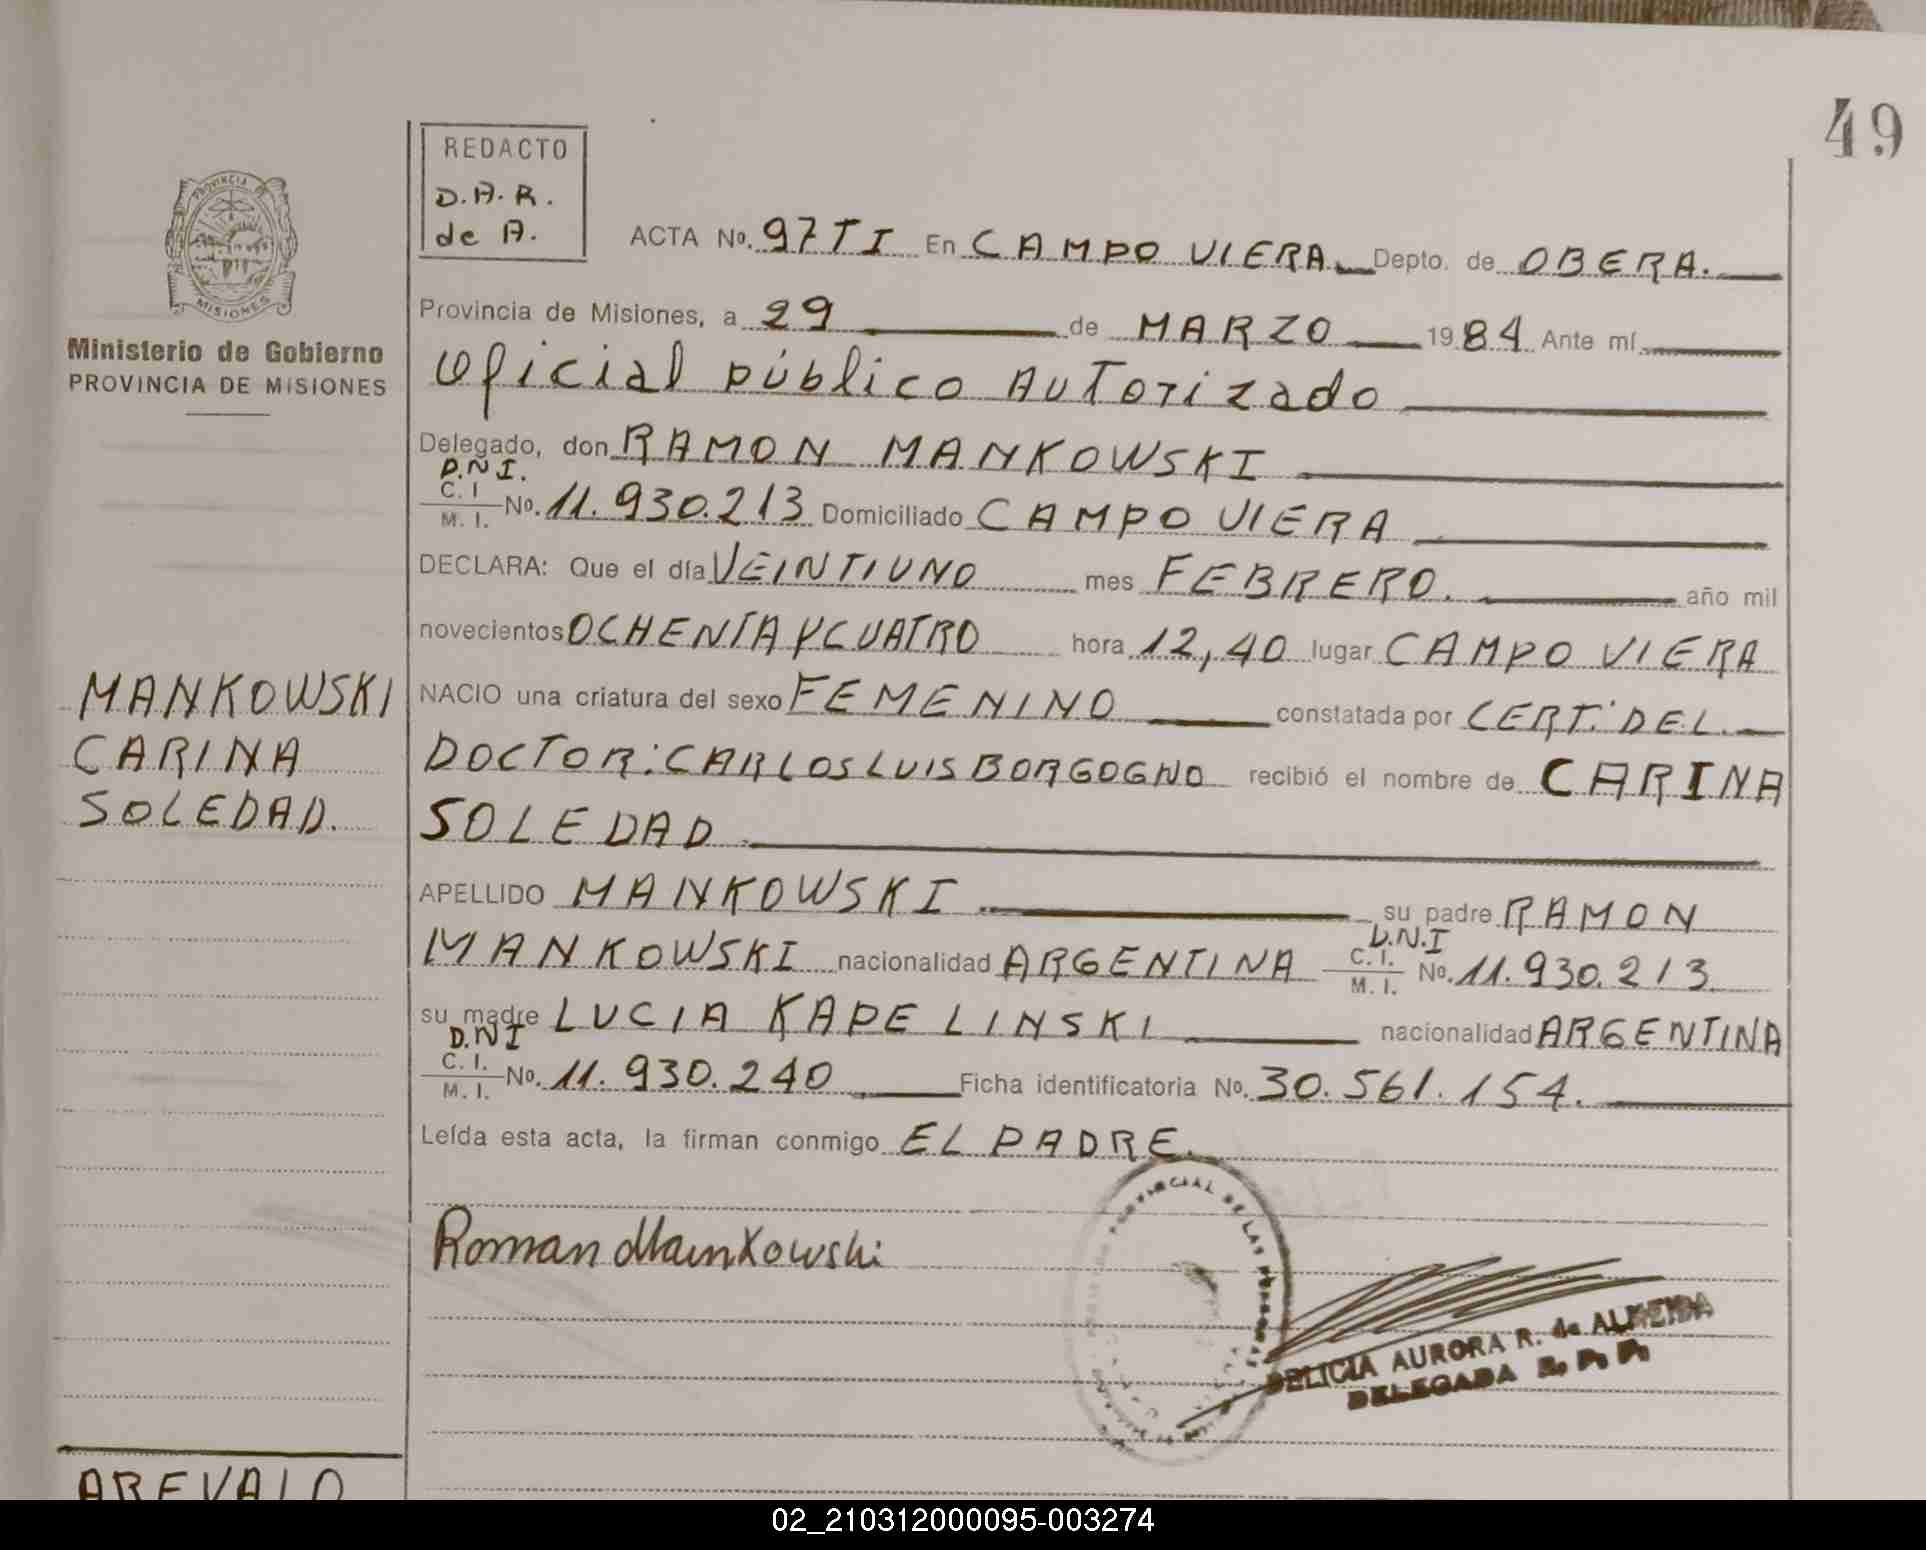 49
REDACTO
D.A.R.
de A.
PROVINCIA DE
MISIONES
Ministerio de Gobierno
PROVINCIA DE MISIONES
MANKOWSKI
CARINA
SOLEDAD.
ACTA No. 97 TI En CAMPO VIERA Depto. de OBERA.
Provincia de Misiones, a 29 de MARZO 1984 Ante mí
Oficial público AUTorizado
Delegado, don RAMON MANKOWSKI
D.N.I.
C. I. / M. I. No. 11.930.213 Domiciliado CAMPO VIERA
DECLARA: Que el día VEINTIUNO mes FEBRERO. año mil
novecientos OCHENTA Y CUATRO hora 12,40 lugar CAMPO VIERA
NACIO una criatura del sexo FEMENINO constatada por CERT. DEL.
DOCTOR: CARLOS LUIS BORGOGNO recibió el nombre de CARINA
SOLEDAD.
APELLIDO MANKOWSKI su padre RAMON
MANKOWSKI nacionalidad ARGENTINA D.N.I C. I. / M. I. No. 11.930.213
su madre LUCIA KAPELINSKI nacionalidad ARGENTINA
D.N.I
C. I. / M. I. No. 11.930.240 Ficha identificatoria No. 30.561.154.
Leída esta acta, la firman conmigo EL PADRE.
Roman Mankowski
PROVINCIAL DE LAS PERSONAS
DELICIA AURORA R. de ALMEIDA
DELEGADA R. P. P.
AREVALO
02_210312000095-003274